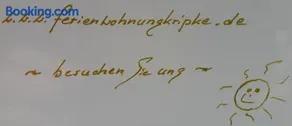 Booking.com
w.w.w. ferienwohnungkripke.de
~ besuchen Sie uns ~